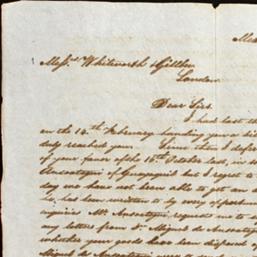 Mess.rs Whitworth & Gillton
London
Dear Sirs.
I had last th
on the 14th February handing you a di
duly reached you. Since then I defer
of your favor of the 15th October last, in
Anzoategui of Guayaquil but I regret to
day we have not been able to get an a
has been written to by every opportun
enquiries Mr. Anzoategui requests me to
any letters from Dn. Miguel de Anzoateg
whether your goods have been disposed of
Miguel de Anzoategui